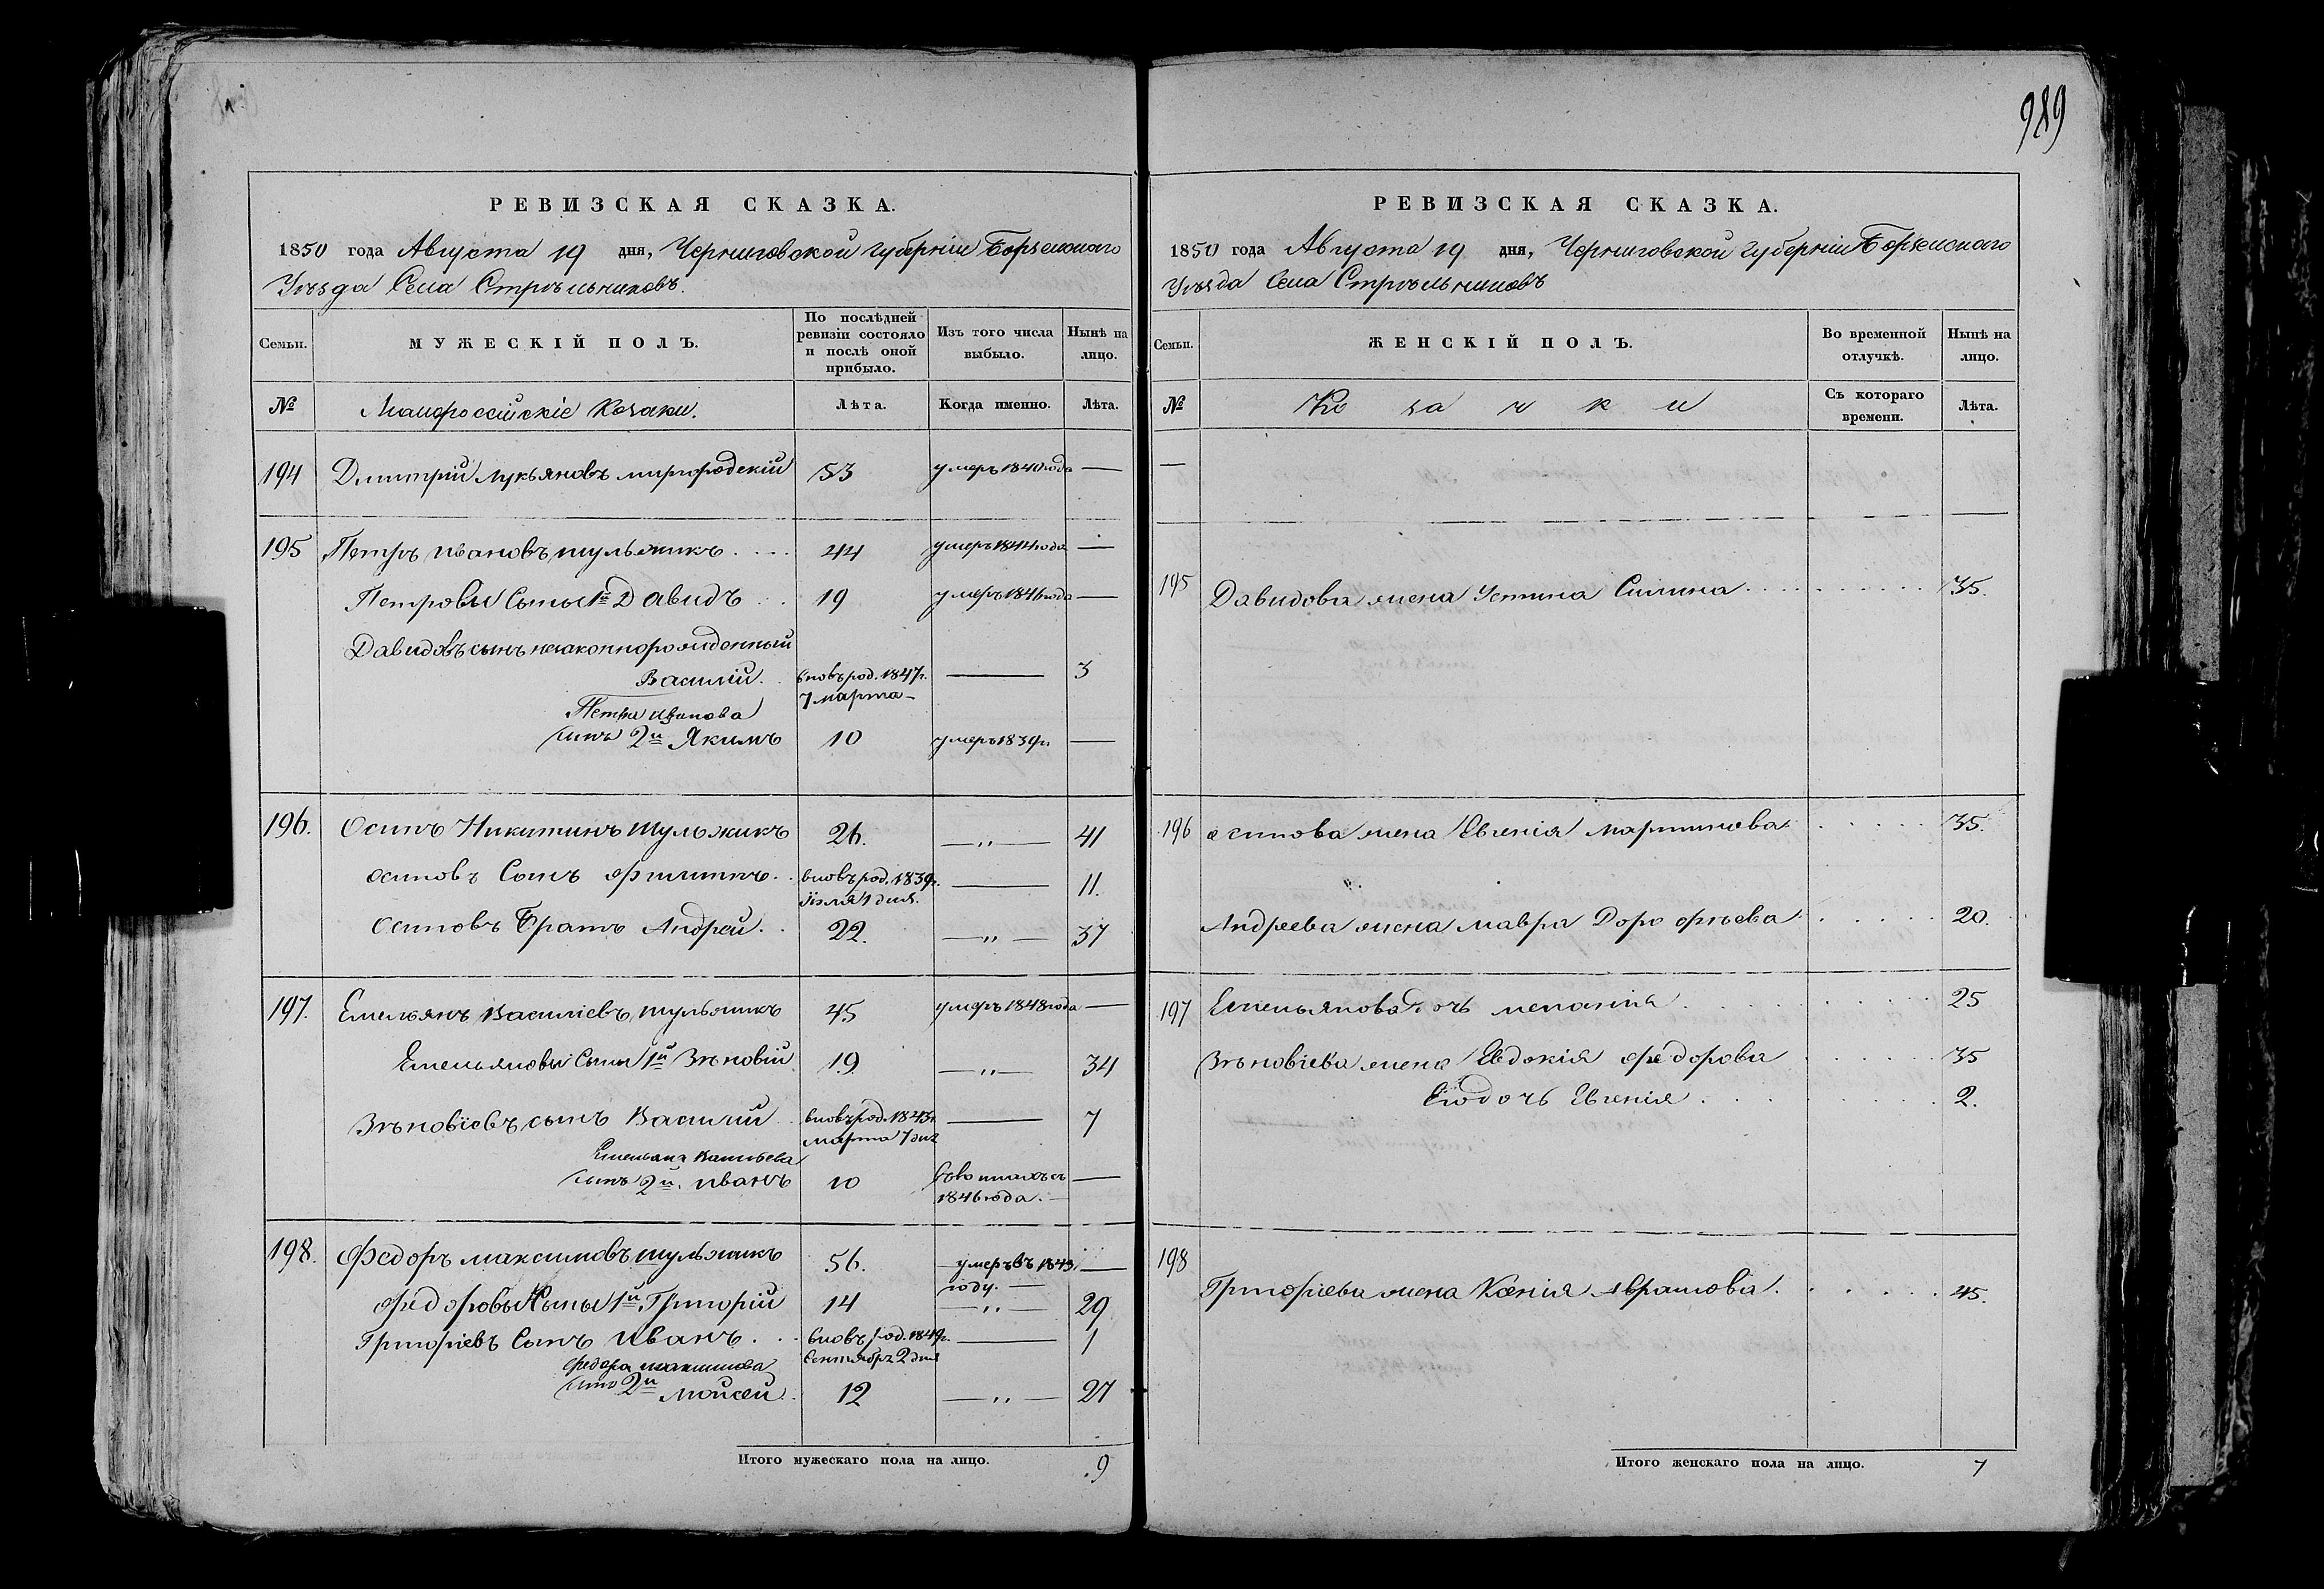 989
РЕВИЗСКАЯ СКАЗКА.
1850 года Августа 19 дня, Черниговской губерніи Борзенскаго
Уѣзда Села Стрѣльниковъ.
Семьи.
МУЖЕСКІЙ ПОЛЪ.
По послѣдней ревизіи состояло и послѣ оной прибыло.
Изъ того числа выбыло.
Нынѣ на лицо.
№ Малороссійскіе Козаки. Лѣта. Когда именно. Лѣта.
194 Дмитрій Лукьяновъ миргородскій 53 умеръ 1840 года —
195 Петръ Ивановъ шульжикъ 44 умеръ 1844 года —
Петровы Сыны 1й Давидъ 19 умеръ 1846 года —
Давидовъ сынъ незаконнорожденный
Василій. вновь род. 1847г. 7 марта — 3
Петра Иванова
сынъ 2й Якимъ 10 умеръ 1839г. —
196. Осипъ Никитинъ шульжикъ 26. —„— 41
Осиповъ Сынъ Филипъ вновь род. 1839г. Іюля 1 дня. — 11.
Осиповъ Братъ Андрей. 22. —„— 37
197. Емельянъ Василіевъ шульжикъ 45 умеръ 1848 года —
Емельяновы Сыны 1й Зѣновій 19. —„— 34
Зѣновіевъ сынъ Василій вновь род. 1843г. марта 7 дня — 7
Емельяна Васильева
сынъ 2й. Иванъ 10 1846 года. —
198. Федоръ Максимовъ шульжикъ 56. умеръ въ 1843 году. —
Федоровы Сыны 1й Григорій 14 —„— 29
Григоріевъ Сынъ Иванъ. вновь род. 1849г. Сентября 2 дня — 1
Федора Максимова
сынъ 2й Мойсей 12 —„— 27
Итого мужескаго пола на лицо. 9
РЕВИЗСКАЯ СКАЗКА.
1850 года Августа 19 дня, Черниговской губерніи Борзенскаго
Уѣзда Села Стрѣльниковъ
Семьи.
ЖЕНСКІЙ ПОЛЪ.
Во временной отлучкѣ.
Нынѣ на лицо.
№ Козачки Съ котораго времени. Лѣта.
—
195 Давидова жена Устина Силина 35.
196 Осипова жена Евгенія Мартинова 35.
Андреева жена Мавра Дорофѣева 20.
197 Емельянова дочь Меланія 25
Зѣновіева жена Евдокія Федорова 35
Его дочь Евгенія 2.
198
Григоріева жена Ксенія Аврамова. 45.
Итого женскаго пола на лицо. 7